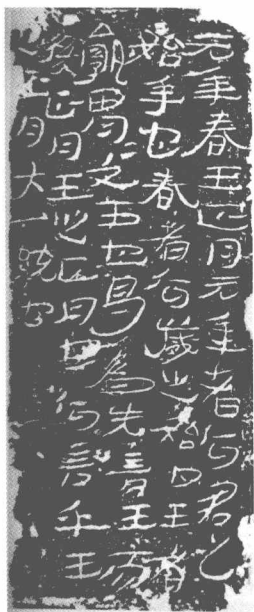 元年春王正月元年者何君之
始年也春者何歲之始也王者
孰胃文王也曷爲先言王而
後正月王之正月也何言乎王
正月大一統也